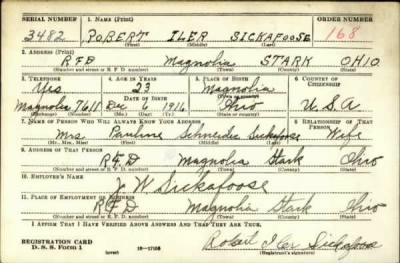 SERIAL NUMBER 1. NAME (Print) ORDER NUMBER
3482 ROBERT ILER SICKAFOOSE 168
(First) (Middle) (Last)
2. ADDRESS (Print)
RFD Magnolia STARK OHIO
(Number and street or R. F. D. number) (Town) (County) (State)
3. TELEPHONE 4. AGE IN YEARS 5. PLACE OF BIRTH 6. COUNTRY OF CITIZENSHIP
Yes 23 Magnolia
DATE OF BIRTH (Town or county)
Magnolia 7611 Dec 6 1916 Ohio U.S.A
(Exchange) (Number) (Mo.) (Day) (Yr.) (State or country)
7. NAME OF PERSON WHO WILL ALWAYS KNOW YOUR ADDRESS 8. RELATIONSHIP OF THAT PERSON
Mrs Pauline Schneider Sickafoose Wife
(Mr., Mrs., Miss) (First) (Middle) (Last)
9. ADDRESS OF THAT PERSON
RFD Magnolia Stark Ohio
(Number and street or R. F. D. number) (Town) (County) (State)
10. EMPLOYER'S NAME
J W Sickafoose
11. PLACE OF EMPLOYMENT OR BUSINESS
RFD Magnolia Stark Ohio
(Number and street or R. F. D. number) (Town) (County) (State)
I AFFIRM THAT I HAVE VERIFIED ABOVE ANSWERS AND THAT THEY ARE TRUE.
REGISTRATION CARD Robert Iler Sickafoose
D. S. S. Form 1 (over) 16—17105 (Registrant's signature)